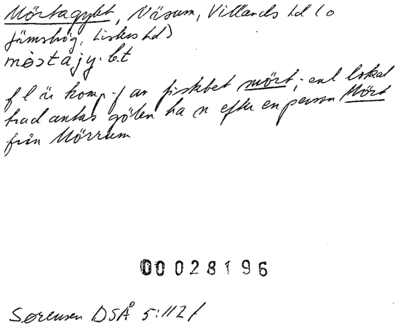 Mörtagylet, Näsum, Villands hd (o
Jämshög, Listers hd)
mɵstajy.l.t
f l är komp-f av fiskbet mört; enl lokal
trad antas gölen ha n efter en person Mört
från Mörrum
00028196
Sørensen DSÅ 5:112 f